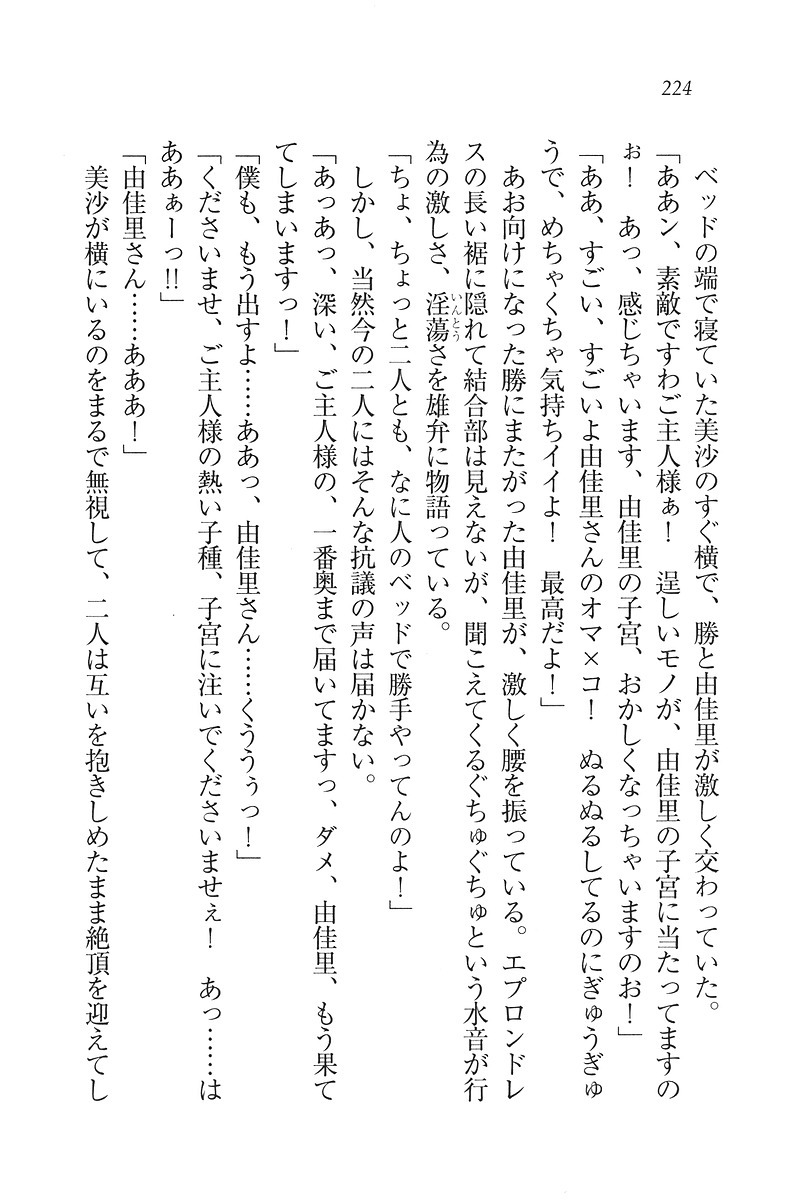 224
ベッドの端で寝ていた美沙のすぐ横で、勝と由佳里が激しく交わっていた。
「ああン、素敵ですわご主人様ぁ！　逞しいモノが、由佳里の子宮に当たってますの
ぉ！　あっ、感じちゃいます、由佳里の子宮、おかしくなっちゃいますのお！」
「ああ、すごい、すごいよ由佳里さんのオマ×コ！　ぬるぬるしてるのにぎゅうぎゅ
うで、めちゃくちゃ気持ちイイよ！　最高だよ！」
あお向けになった勝にまたがった由佳里が、激しく腰を振っている。エプロンドレ
スの長い裾に隠れて結合部は見えないが、聞こえてくるぐちゅぐちゅという水音が行
為の激しさ、淫蕩さを雄弁に物語っている。
いんとう
「ちょ、ちょっと二人とも、なに人のベッドで勝手やってんのよ！」
しかし、当然今の二人にはそんな抗議の声は届かない。
「あっあっ、深い、ご主人様の、一番奥まで届いてますっ、ダメ、由佳里、もう果て
てしまいますっ！」
「僕も、もう出すよ……ああっ、由佳里さん……くううぅっ！」
「くださいませ、ご主人様の熱い子種、子宮に注いでくださいませぇ！　あっ……は
ああぁーっ!!」
「由佳里さん……あああ！」
美沙が横にいるのをまるで無視して、二人は互いを抱きしめたまま絶頂を迎えてし